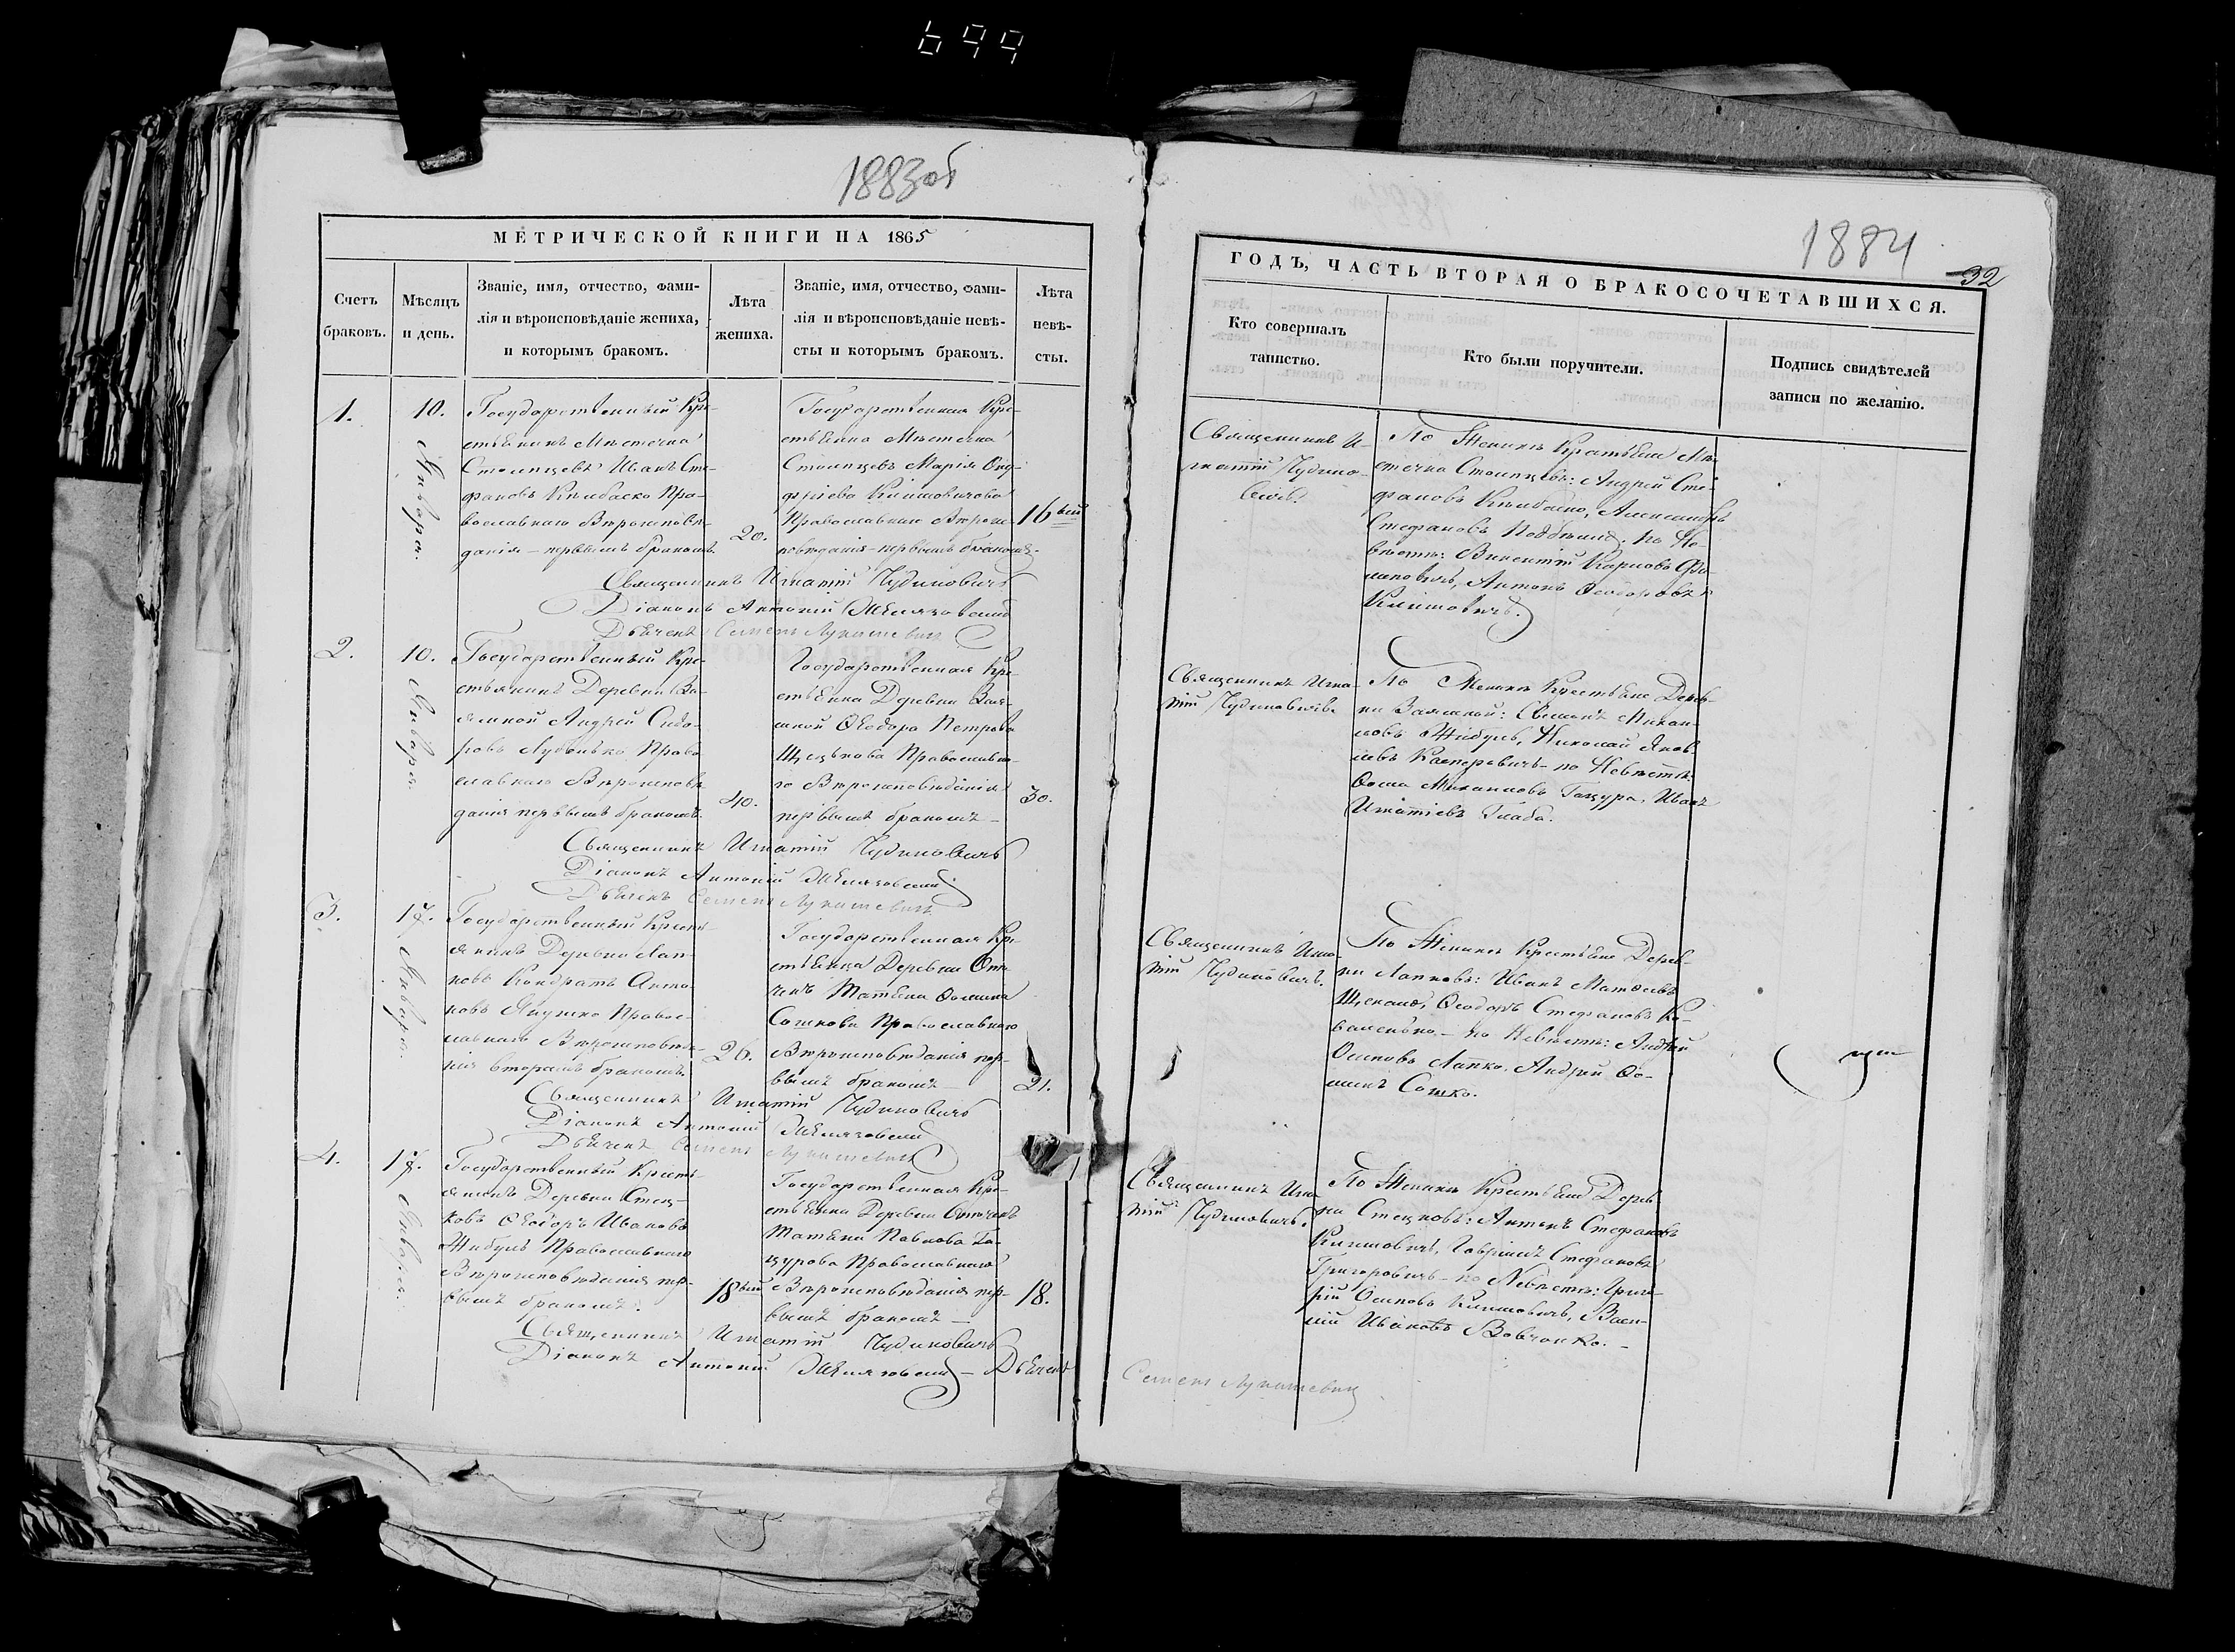 699
1883об
МЕТРИЧЕСКОЙ КНИГИ НА 1865
Счетъ браковъ.
Мѣсяцъ и день.
Званіе, имя, отчество, фами-
лія и вѣроисповѣданіе жениха,
и которымъ бракомъ.
Лѣта
жениха.
Званіе, имя, отчество, фами-
лія и вѣроисповѣданіе невѣ-
сты и которымъ бракомъ.
Лѣта
невѣ-
сты.
1.
10.
Января.
Государственный Кре-
стьянинъ Мѣстечка
Столпцевъ Иванъ Сте-
фановъ Кульбаско Пра-
вославнаго Вѣроисповѣ-
данія – первымъ бракомъ.
20.
Государственная Кре-
стьянка Мѣстечка
Столпцевъ Марія Ону-
фріева Климовичова
Православнаго Вѣроис-
повѣданія – первымъ бракомъ.
16
Священникъ Игнатій Чудиновичъ
Діаконъ Антоній
Дьячекъ Семенъ Лукашевичъ
2.
10.
Января.
Государственный Кре-
стьянинъ Деревни За-
ямной Андрей Сидо-
ровъ Право-
славнаго Вѣроисповѣ-
данія первымъ бракомъ.
40.
Государственная Кре-
стьянка Деревни Заям-
ной Ѳеодора Петрова
Православна-
го Вѣроисповѣданія
первымъ бракомъ –
30.
Священникъ Игнатій Чудиновичъ
Діаконъ Антоній
Дьячекъ Семенъ Лукашевичъ
3.
17.
Января.
Государственный Кресть-
янинъ Деревни Лоп-
ковъ Кондратъ Анто-
новъ Правос-
лавнаго Вѣроисповѣда-
нія вторымъ бракомъ.
26.
Государственная Кре-
стьянка Деревни Опе-
чекъ Татьяна Ѳомина
Сошкова Православнаго
Вѣроисповѣданія пер-
вымъ бракомъ –
21.
Священникъ Игнатій Чудиновичъ
Діаконъ Антоній
Дьячекъ Семенъ Лукашевичъ
4.
17.
Января.
Государственный Кресть-
янинъ Деревни Стец-
ковъ Ѳеодоръ Ивановъ
Жибуль Православнаго
Вѣроисповѣданія пер-
вымъ бракомъ.
18
Государственная Кре-
стьянка Деревни
Татьяна Павлова Га-
цурова Православнаго
Вѣроисповѣданія пер-
вымъ бракомъ –
18.
Священникъ Игнатій Чудиновичъ
Діаконъ Антоній – Дьячекъ
1884
32
ГОДЪ, ЧАСТЬ ВТОРАЯ О БРАКОСОЧЕТАВШИХСЯ.
Кто совершалъ
таинство.
Кто были поручители.
Подпись свидѣтелей
записи по желанію.
Священникъ И-
гнатій Чудино-
вичъ.
По Женихѣ Крестьяне Мѣ-
стечка Столпцевъ: Андрей Сте-
фановъ Кульбаско, Александръ
Стефановъ По Не-
вѣстѣ: Викентій Карповъ Фи-
липовичъ, Антонъ Ѳеодоровъ
Климовичъ.
Священникъ Игна-
тій Чудиновичъ.
По Женихѣ Крестьяне Дерев-
ни Заямной: Семенъ Михай-
ловъ Жибуль, Николай Яков-
левъ Касперовичъ – по Невѣстѣ:
Ѳома Михайловъ Гацура, Иванъ
Игнатіевъ Глаба.
Священникъ Игна-
тій Чудиновичъ.
По Женихѣ Крестьяне Дерев-
ни Лопковъ: Иванъ Матвеевъ
Ѳеодоръ Стефановъ Ко-
валенько – по Невѣстѣ: Андрей
Осиповъ Лапко, Андрей Ѳо-
минъ Сошко.
Священникъ Игна-
тій Чудиновичъ.
По Женихѣ Крестьяне Дерев-
ни Стецковъ: Антонъ Стефановъ
Климовичъ, Гавріилъ Стефановъ
Григоровичъ – по Невѣстѣ: Григо-
рій Осиповъ Климовичъ, Васи-
лій Ивановъ Вовчокъ. –
Семенъ Лукашевичъ